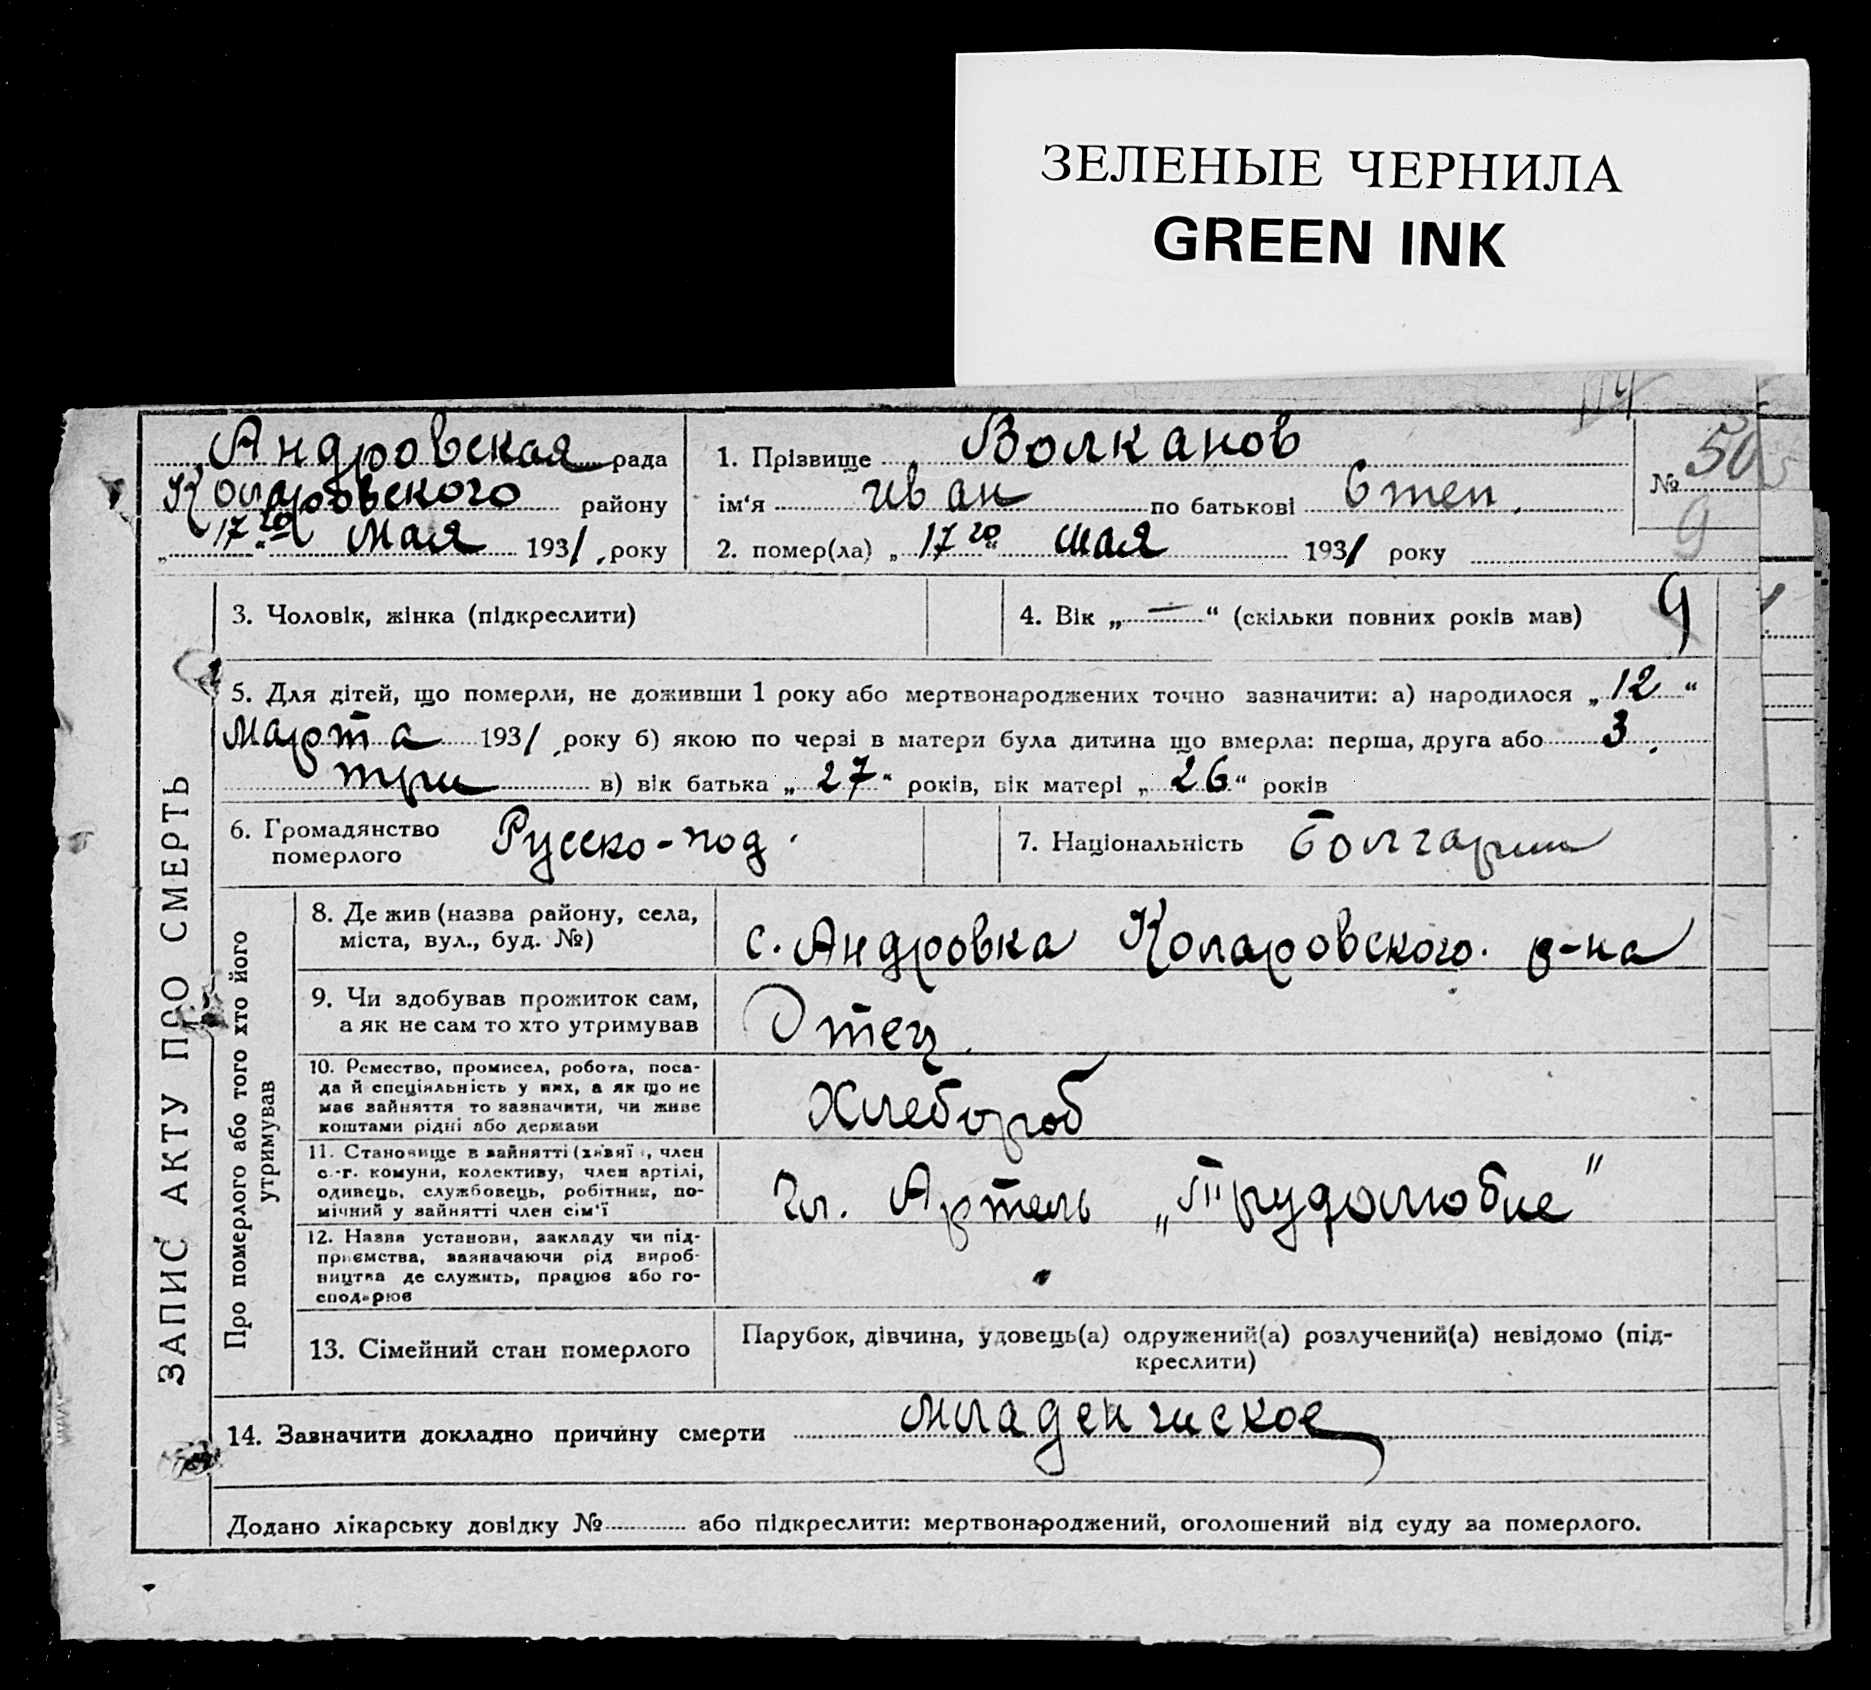 ЗЕЛЕНЫЕ ЧЕРНИЛА
GREEN INK
114
Андровская рада
Коларовского району
„ 17го “ Мая 1931, року
1. Прізвище Волканов
ім‘я Иван по батькові Степ.
2. помер(ла) „ 17го “ мая 1931 року
№ 50
9
3. Чоловік, жінка (підкреслити)
4. Вік „ — “ (скільки повних років мав)
9
5. Для дітей, що померли, не доживши 1 року або мертвонароджених точно зазначити: а) народилося „ 12 “
Марта 1931, року б) якою по черзі в матери була дитина що вмерла: перша, друга або 3.
три в) вік батька „ 27 “ років, вік матері „ 26 “ років
6. Громадянство
померлого
Русско-под.
7. Національність Болгарин
ЗАПИС АКТУ ПРО СМЕРТЬ
Про померлого або того хто його
утримував
8. Де жив (назва району, села,
міста, вул., буд. №)
с. Андровка Коларовского. р-на
9. Чи здобував прожиток сам,
а як не сам то хто утримував
Отец.
10. Ремество, промисел, робота, поса-
да й спеціяльність у них, а як що не
має зайняття то зазначити, чи живе
коштами рідні або держави
Хлебороб
11. Становище в зайнятті (хазяї , член
с.-г. комуни, колективу, член артілі,
одинець, службовець, робітник, по-
мічний у зайнятті член сім‘ї
Чл. Артель „Трудолюбие"
12. Назва установи, закладу чи під-
приємства, зазначаючи рід вироб-
ництва де служить, працює або го-
сподарює
13. Сімейний стан померлого
Парубок, дівчина, удовець(а) одружений(а) розлучений(а) невідомо (під-
креслити)
14. Зазначити докладно причину смерти младенческое
Додано лікарську довідку № або підкреслити: мертвонароджений, оголошений від суду за померлого.